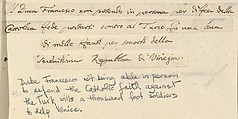 Il Duca Francesco non potendo in persona per difesa della
Cattolica fede portarsi contro al Turco
di mille fanti per soccorso della
Serenissima Republica di Venezia.
Duke Francesco not being able in person
to defend the Catholic faith against
the Turk with a thousand foot soldiers
to help Venice.